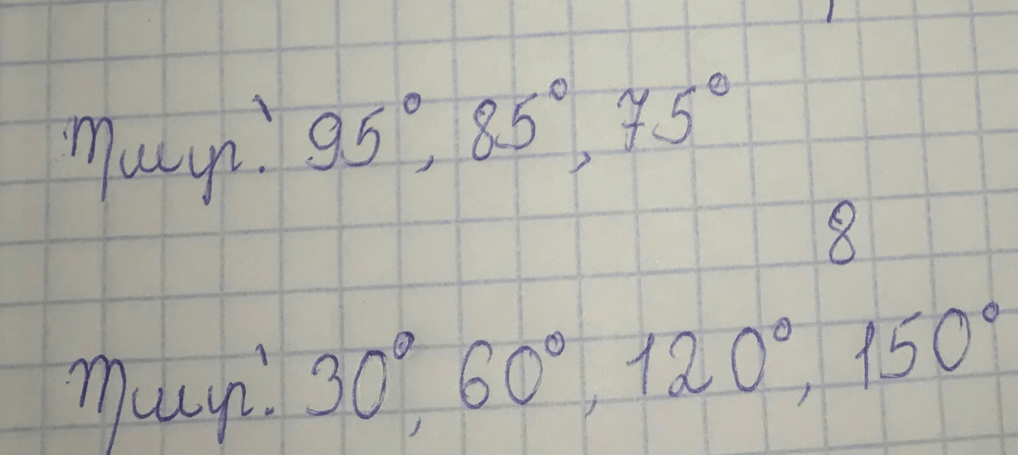 Պատ.՝ 95°, 85°, 75°
8
Պատ.՝ 30°, 60°, 120°, 150°